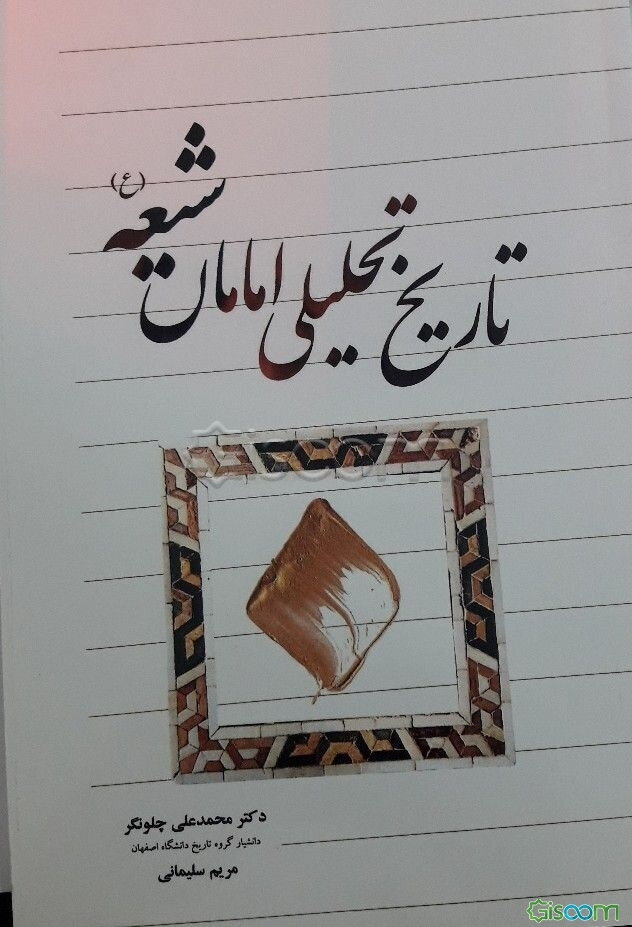 تاریخ تحلیلی امامان شیعه (ع)
Gisoom
دکتر محمدعلی چلونگر
دانشیار گروه تاریخ دانشگاه اصفهان
مریم سلیمانی
Gisoom